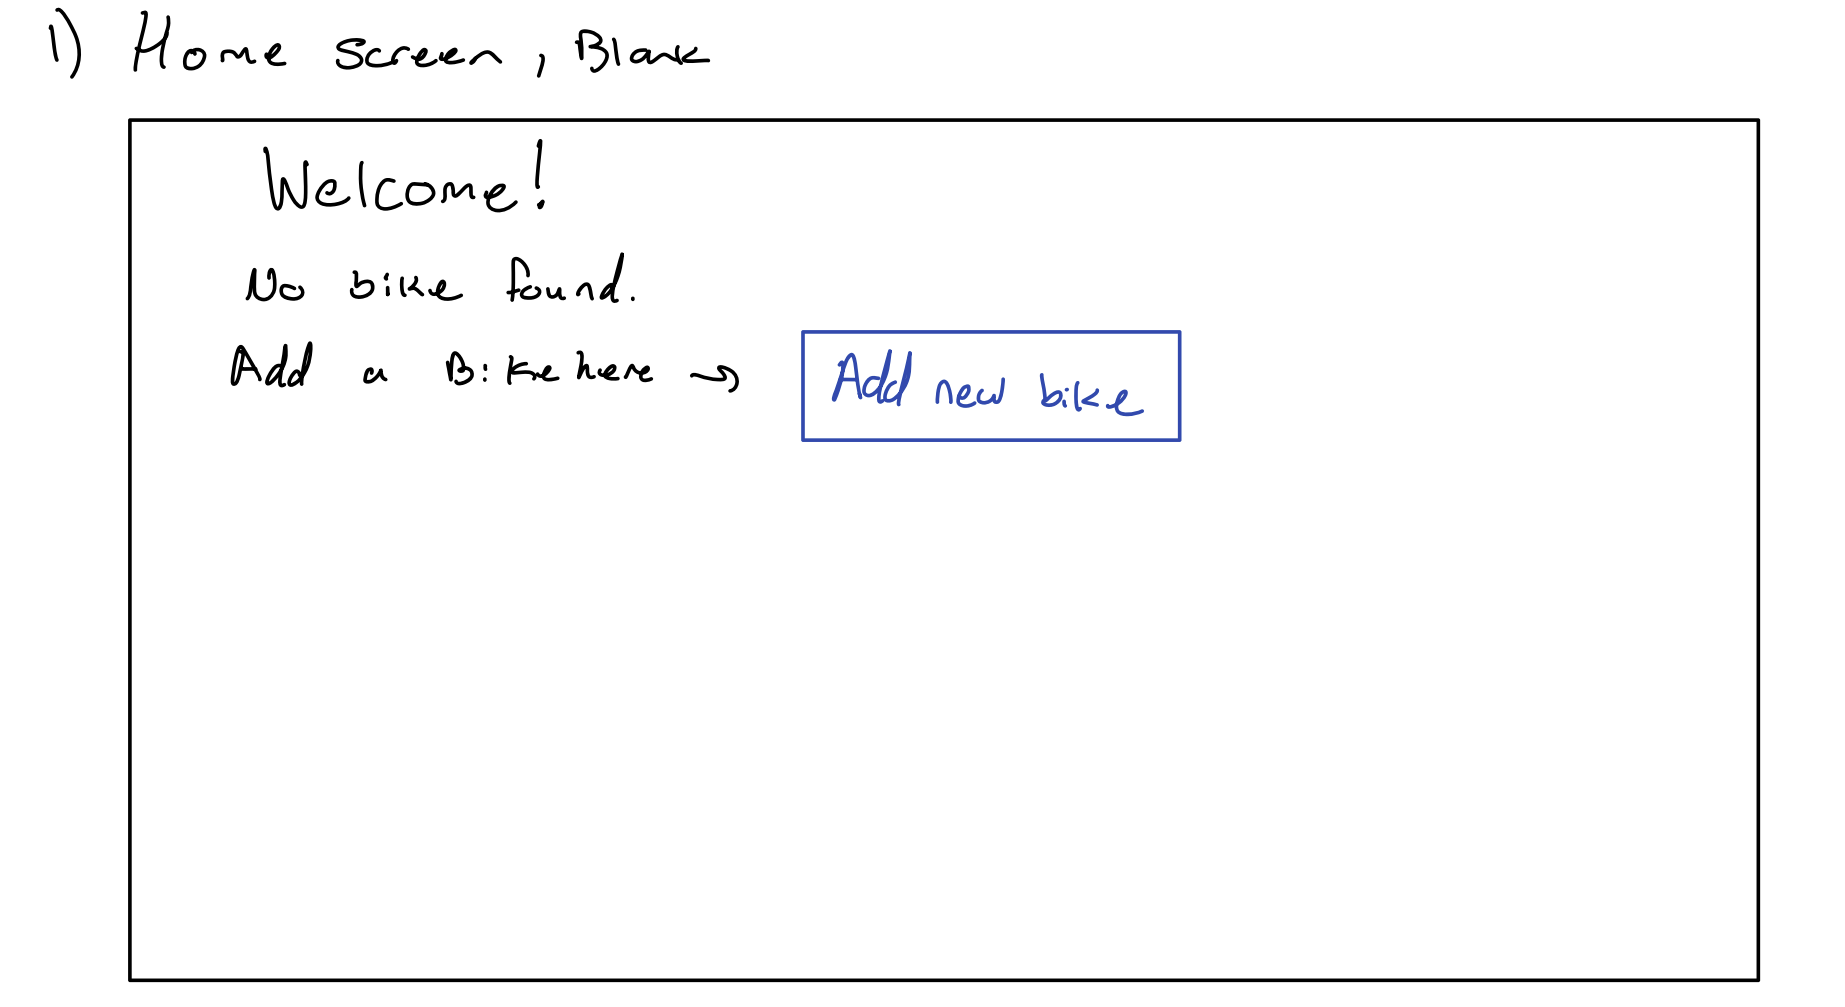 1) Home screen, Blank
Welcome!
No bike found.
Add a Bike here →
Add new bike